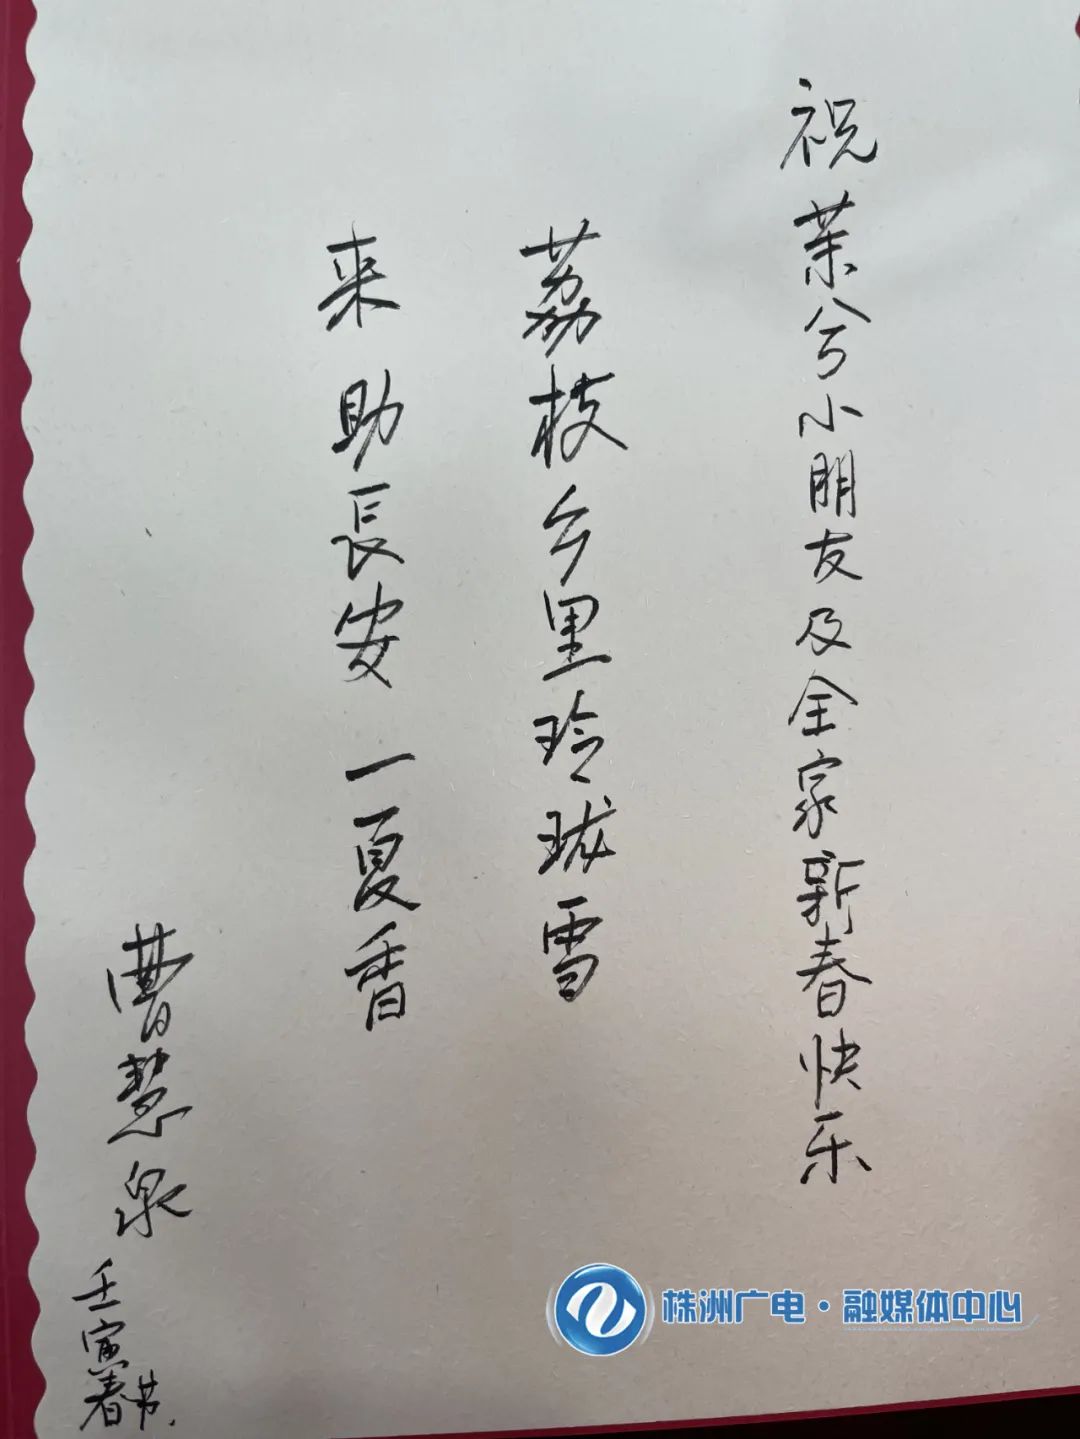 祝茉兮小朋友及全家新春快乐
荔枝乡里玲珑雪
来助長安一夏香
曹慧泉
壬寅春节.
株洲广电·融媒体中心